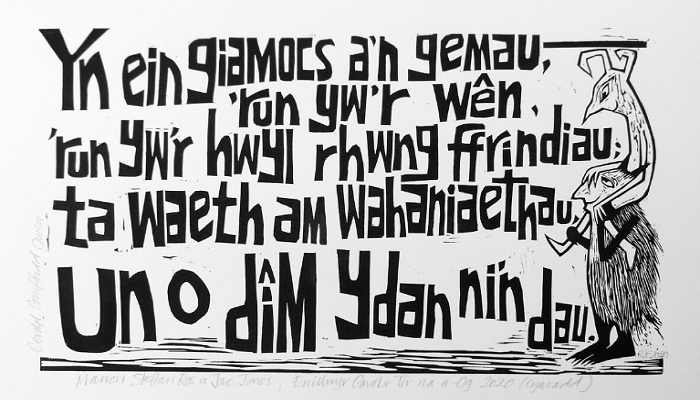 Yn ein giamocs a'n gemau,
'run yw'r wên,
'run yw'r hwyl rhwng ffrindiau;
ta waeth am wahaniaethau,
un o dîm ydan ni'n dau.
Manon Steffan Ros a Jac Jones, Enillwyr Gwobr Tir na n-Og 2020 (Cynradd)